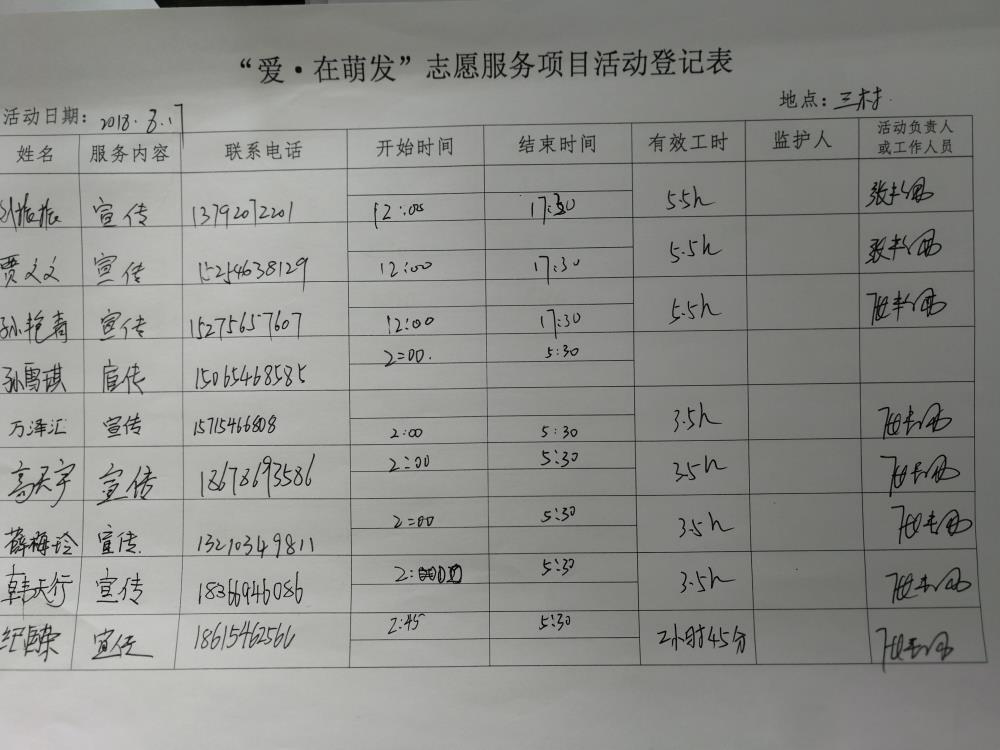 “爱·在萌发”志愿服务项目活动登记表
活动日期: 2018.3.17 地点:三村
姓名 服务内容 联系电话 开始时间 结束时间 有效工时 监护人 活动负责人或工作人员
刘振振 宣传 13792072201 12:00 17:30 5.5h
贾文文 宣传 15254638129 12:00 17:30 5.5h
孙艳青 宣传 15275657607 12:00 17:30 5.5h
孙雪琪 宣传 15065468585 2:00. 5:30
万泽汇 宣传 15715466808 2:00 5:30 3.5h
高天宇 宣传 18678693586 2:00 5:30 3.5h
薛梅玲 宣传. 13210349811 2:00 5:30 3.5h
韩天行 宣传 18366946086 2: 5:30 3.5h
宣传 18615462566 2:45 5:30 2小时45分